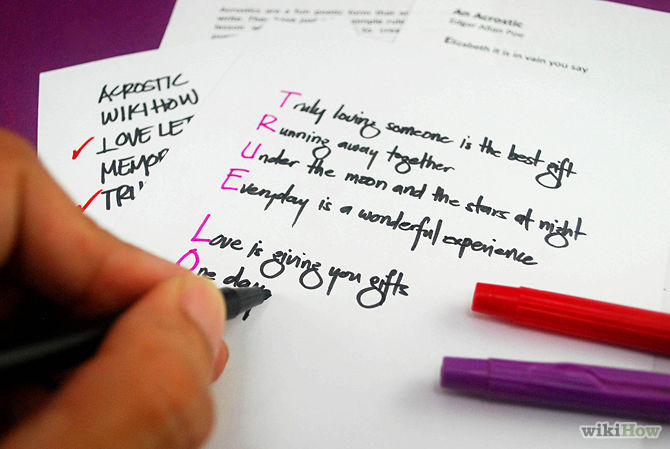 Acrostics are a fun poetic form that
write. The
An Acrostic
Edgar Allan Poe
Elizabeth it is in vain you say
ACROSTIC
WIKIHOW
LOVE LET
MEMOR
TRU
Truly loving someone is the best gift
Running away together
Under the moon and the stars at night
Everyday is a wonderful experience
Love is giving you gifts
One day
wikiHow